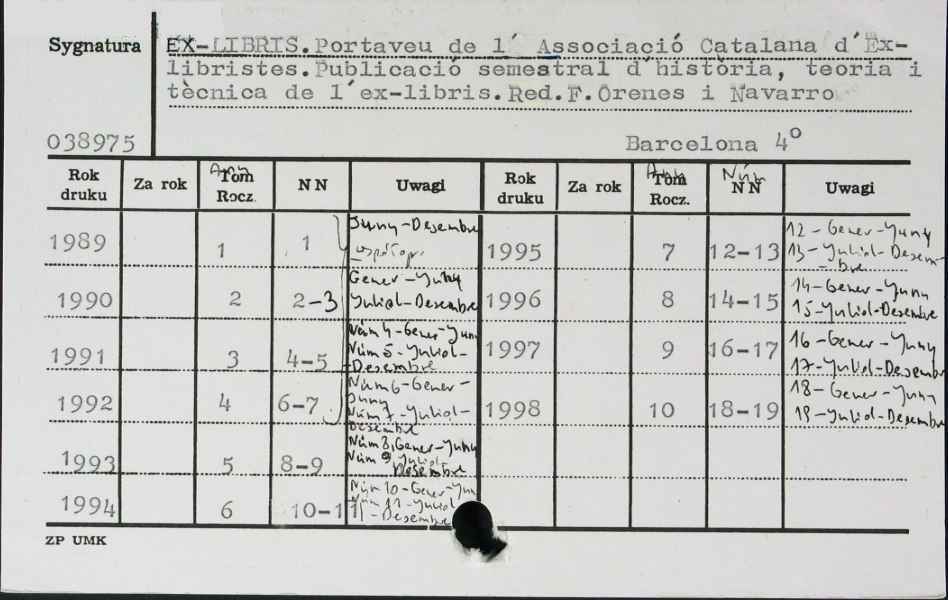 Sygnatura
EX-LIBRIS.Portaveu de l´ Associació Catalana d´Ex-
libristes.Publicació semestral d´història, teoria i
tècnica de l´ex-libris.Red.F.Orenes i Navarro
038975 Barcelona 4°
Rok druku Za rok Tom Rocz. NN Uwagi Rok druku Za rok Tom Rocz. Núm NN Uwagi
1989 1 1 Juny-Desembre
1990 2 2-3 Gener-Juny
Juliol-Desembre
1991 3 4-5 Núm 4-Gener-Juny
Núm 5-Juliol-
Desembre
1992 4 6-7 Núm 6-Gener-
Juny
Núm 7-Juliol-
Desembre
1993 5 8-9 Núm 8, Gener-Juny
Núm 9, Juliol
Desembre
1994 6 10-11 Núm 10-Gener-Juny
Núm 11-Juliol
-Desembre
1995 7 12-13 12-Gener-Juny
13-Juliol-Desem-
-bre
1996 8 14-15 14-Gener-Juny
15-Juliol-Desembre
1997 9 16-17 16-Gener-Juny
17-Juliol-Desembre
1998 10 18-19 18-Gener-Juny
19-Juliol-Desembre
ZP UMK